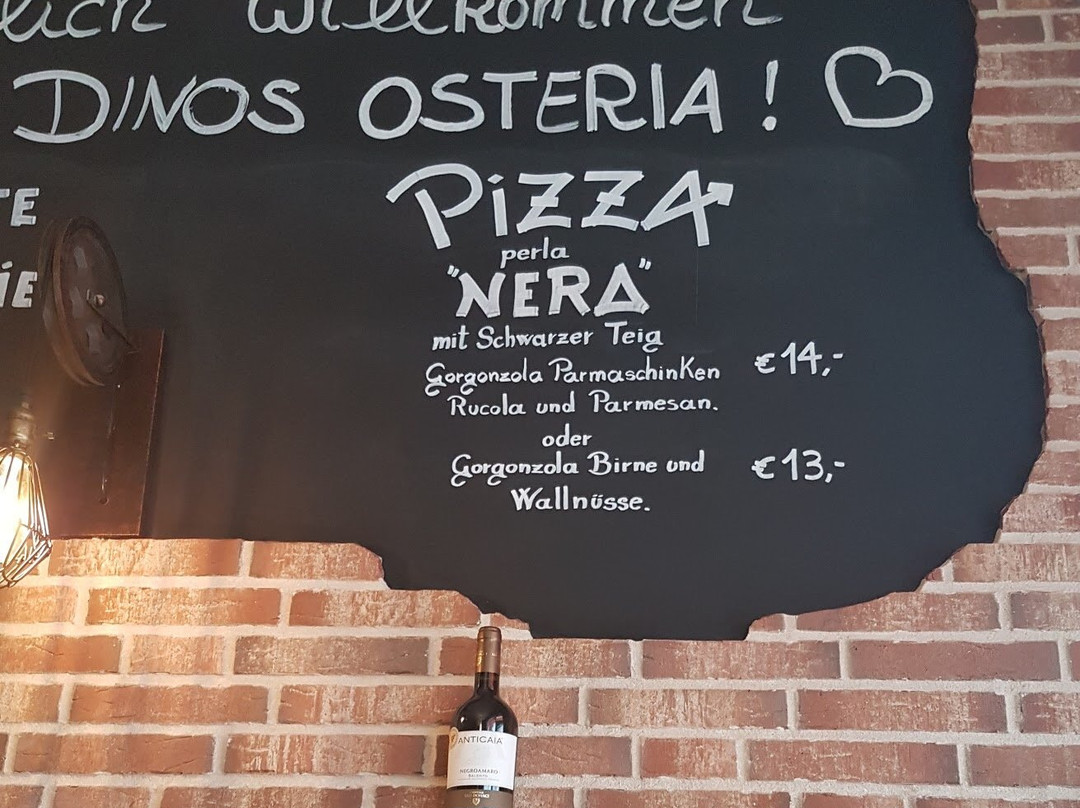 lich willkommen
DINOS OSTERIA!
TE
IE
PiZZA
perla
"NERA"
mit Schwarzer Teig
Gorgonzola ParmaschinKen
Rucola und Parmesan.
€14,-
oder
Gorgonzola Birne und
Wallnüsse.
€13,-
ANTICAIA
NEGROAMARO
SALENTO